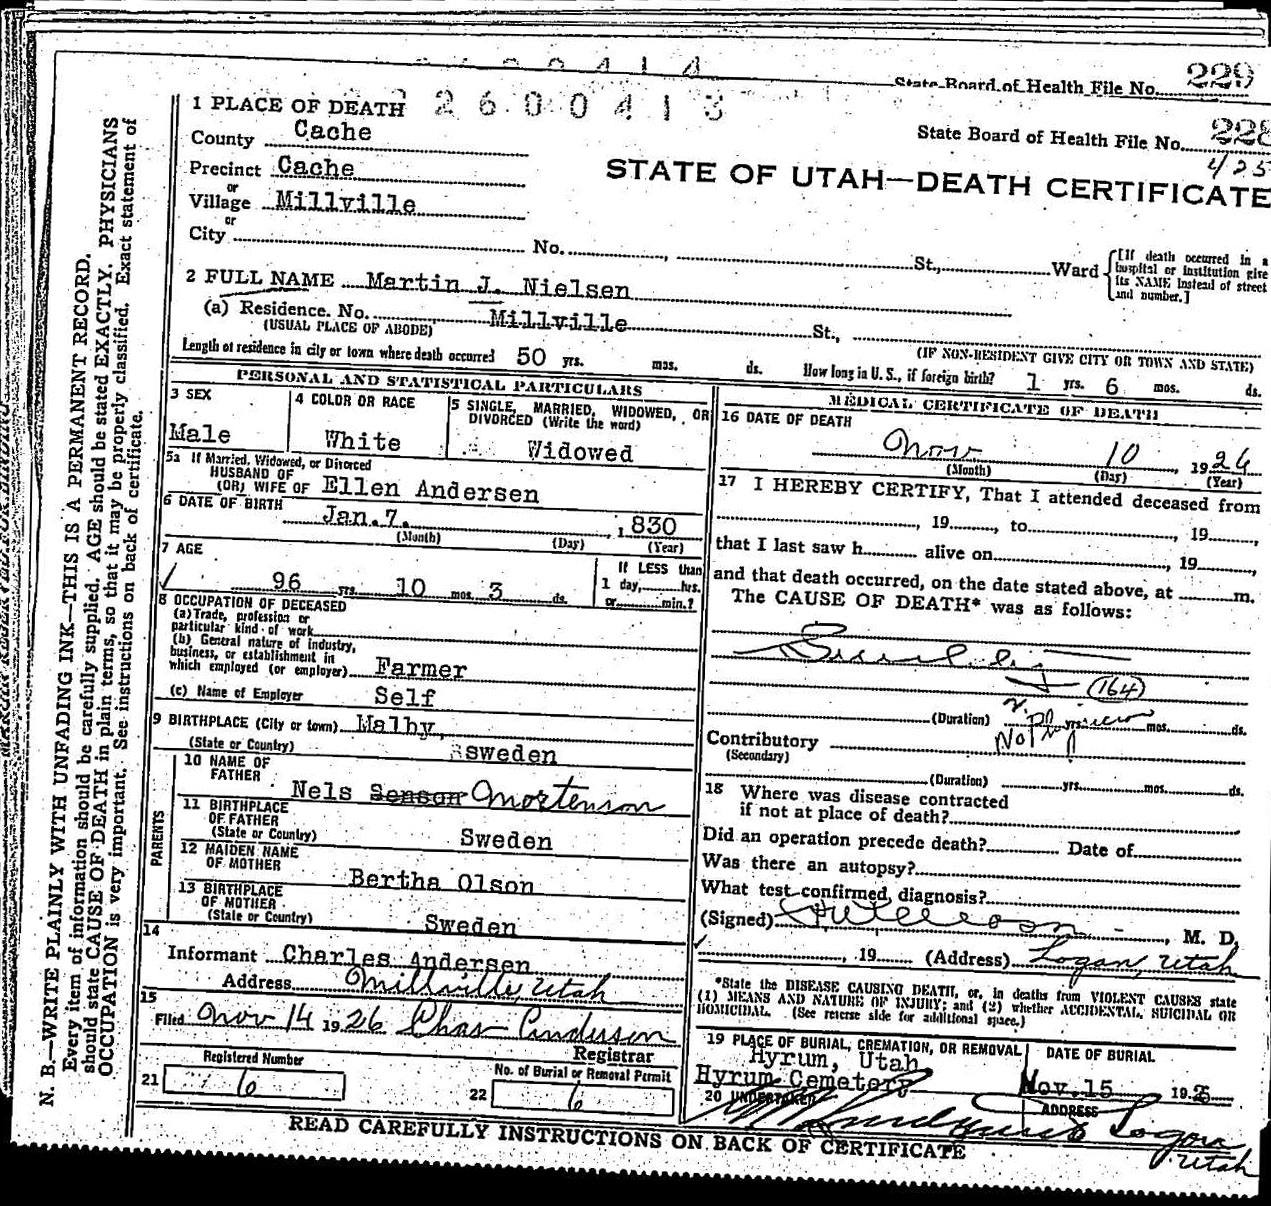 State Board of Health File No. 229
2600413
State Board of Health File No. 228
425
STATE OF UTAH—DEATH CERTIFICATE
1 PLACE OF DEATH
County Cache
Precinct Cache
or
Village Millville
or
City No. , St., Ward
[If death occurred in a hospital or institution give its NAME instead of street and number.]
2 FULL NAME Martin J. Nielsen
(a) Residence. No. Millville St.,
(USUAL PLACE OF ABODE) (IF NON-RESIDENT GIVE CITY OR TOWN AND STATE)
Length of residence in city or town where death occurred 50 yrs. mos. ds. How long in U. S., if foreign birth? 1 yrs. 6 mos. ds.
PERSONAL AND STATISTICAL PARTICULARS
3 SEX
Male
4 COLOR OR RACE
White
5 SINGLE, MARRIED, WIDOWED, OR
DIVORCED (Write the word)
Widowed
5a If Married, Widowed, or Divorced
HUSBAND OF
(OR) WIFE OF Ellen Andersen
6 DATE OF BIRTH Jan. 7. , 1830
(Month) (Day) (Year)
7 AGE
96 yrs. 10 mos. 3 ds.
If LESS than
1 day, hrs.
or min.?
8 OCCUPATION OF DECEASED
(a) Trade, profession or
particular kind of work
(b) General nature of industry,
business, or establishment in
which employed (or employer) Farmer
(c) Name of Employer Self
9 BIRTHPLACE (City or town) Malby,
(State or Country) sweden
PARENTS
10 NAME OF
FATHER
Nels Benson Mortenson
11 BIRTHPLACE
OF FATHER
(State or Country) Sweden
12 MAIDEN NAME
OF MOTHER
Bertha Olson
13 BIRTHPLACE
OF MOTHER
(State or Country) Sweden
14
Informant Charles Andersen
Address Millville, Utah
15
Filed Nov 14 1926 Chas Anderson
Registrar
Registered Number
21 6
No. of Burial or Removal Permit
22 6
MEDICAL CERTIFICATE OF DEATH
16 DATE OF DEATH
Nov 10, 1926
(Month) (Day) (Year)
17 I HEREBY CERTIFY, That I attended deceased from
, 19 , to , 19 ,
that I last saw h alive on , 19 ,
and that death occurred, on the date stated above, at m.
The CAUSE OF DEATH* was as follows:
Senility
(164)
(Duration) yrs. mos. ds.
No Physician
Contributory
(Secondary)
(Duration) yrs. mos. ds.
18 Where was disease contracted
if not at place of death?
Did an operation precede death? Date of
Was there an autopsy?
What test confirmed diagnosis?
(Signed) , M. D.
, 19 (Address) Logan, Utah
*State the DISEASE CAUSING DEATH, or, in deaths from VIOLENT CAUSES state
(1) MEANS AND NATURE OF INJURY; and (2) whether ACCIDENTAL, SUICIDAL OR
HOMICIDAL. (See reverse side for additional space.)
19 PLACE OF BURIAL, CREMATION, OR REMOVAL
Hyrum, Utah
Hyrum Cemetery
DATE OF BURIAL
Nov. 15 192
20 UNDERTAKER
ADDRESS
Logan
Utah
READ CAREFULLY INSTRUCTIONS ON BACK OF CERTIFICATE
N. B.—WRITE PLAINLY WITH UNFADING INK—THIS IS A PERMANENT RECORD.
Every item of information should be carefully supplied. AGE should be stated EXACTLY. PHYSICIANS
should state CAUSE OF DEATH in plain terms, so that it may be properly classified. Exact statement of
OCCUPATION is very important. See instructions on back of certificate.